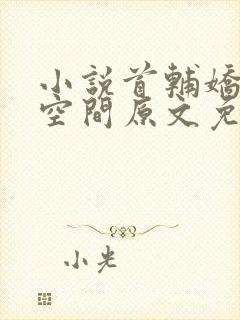 小說首輔嬌
空間原文免
小光